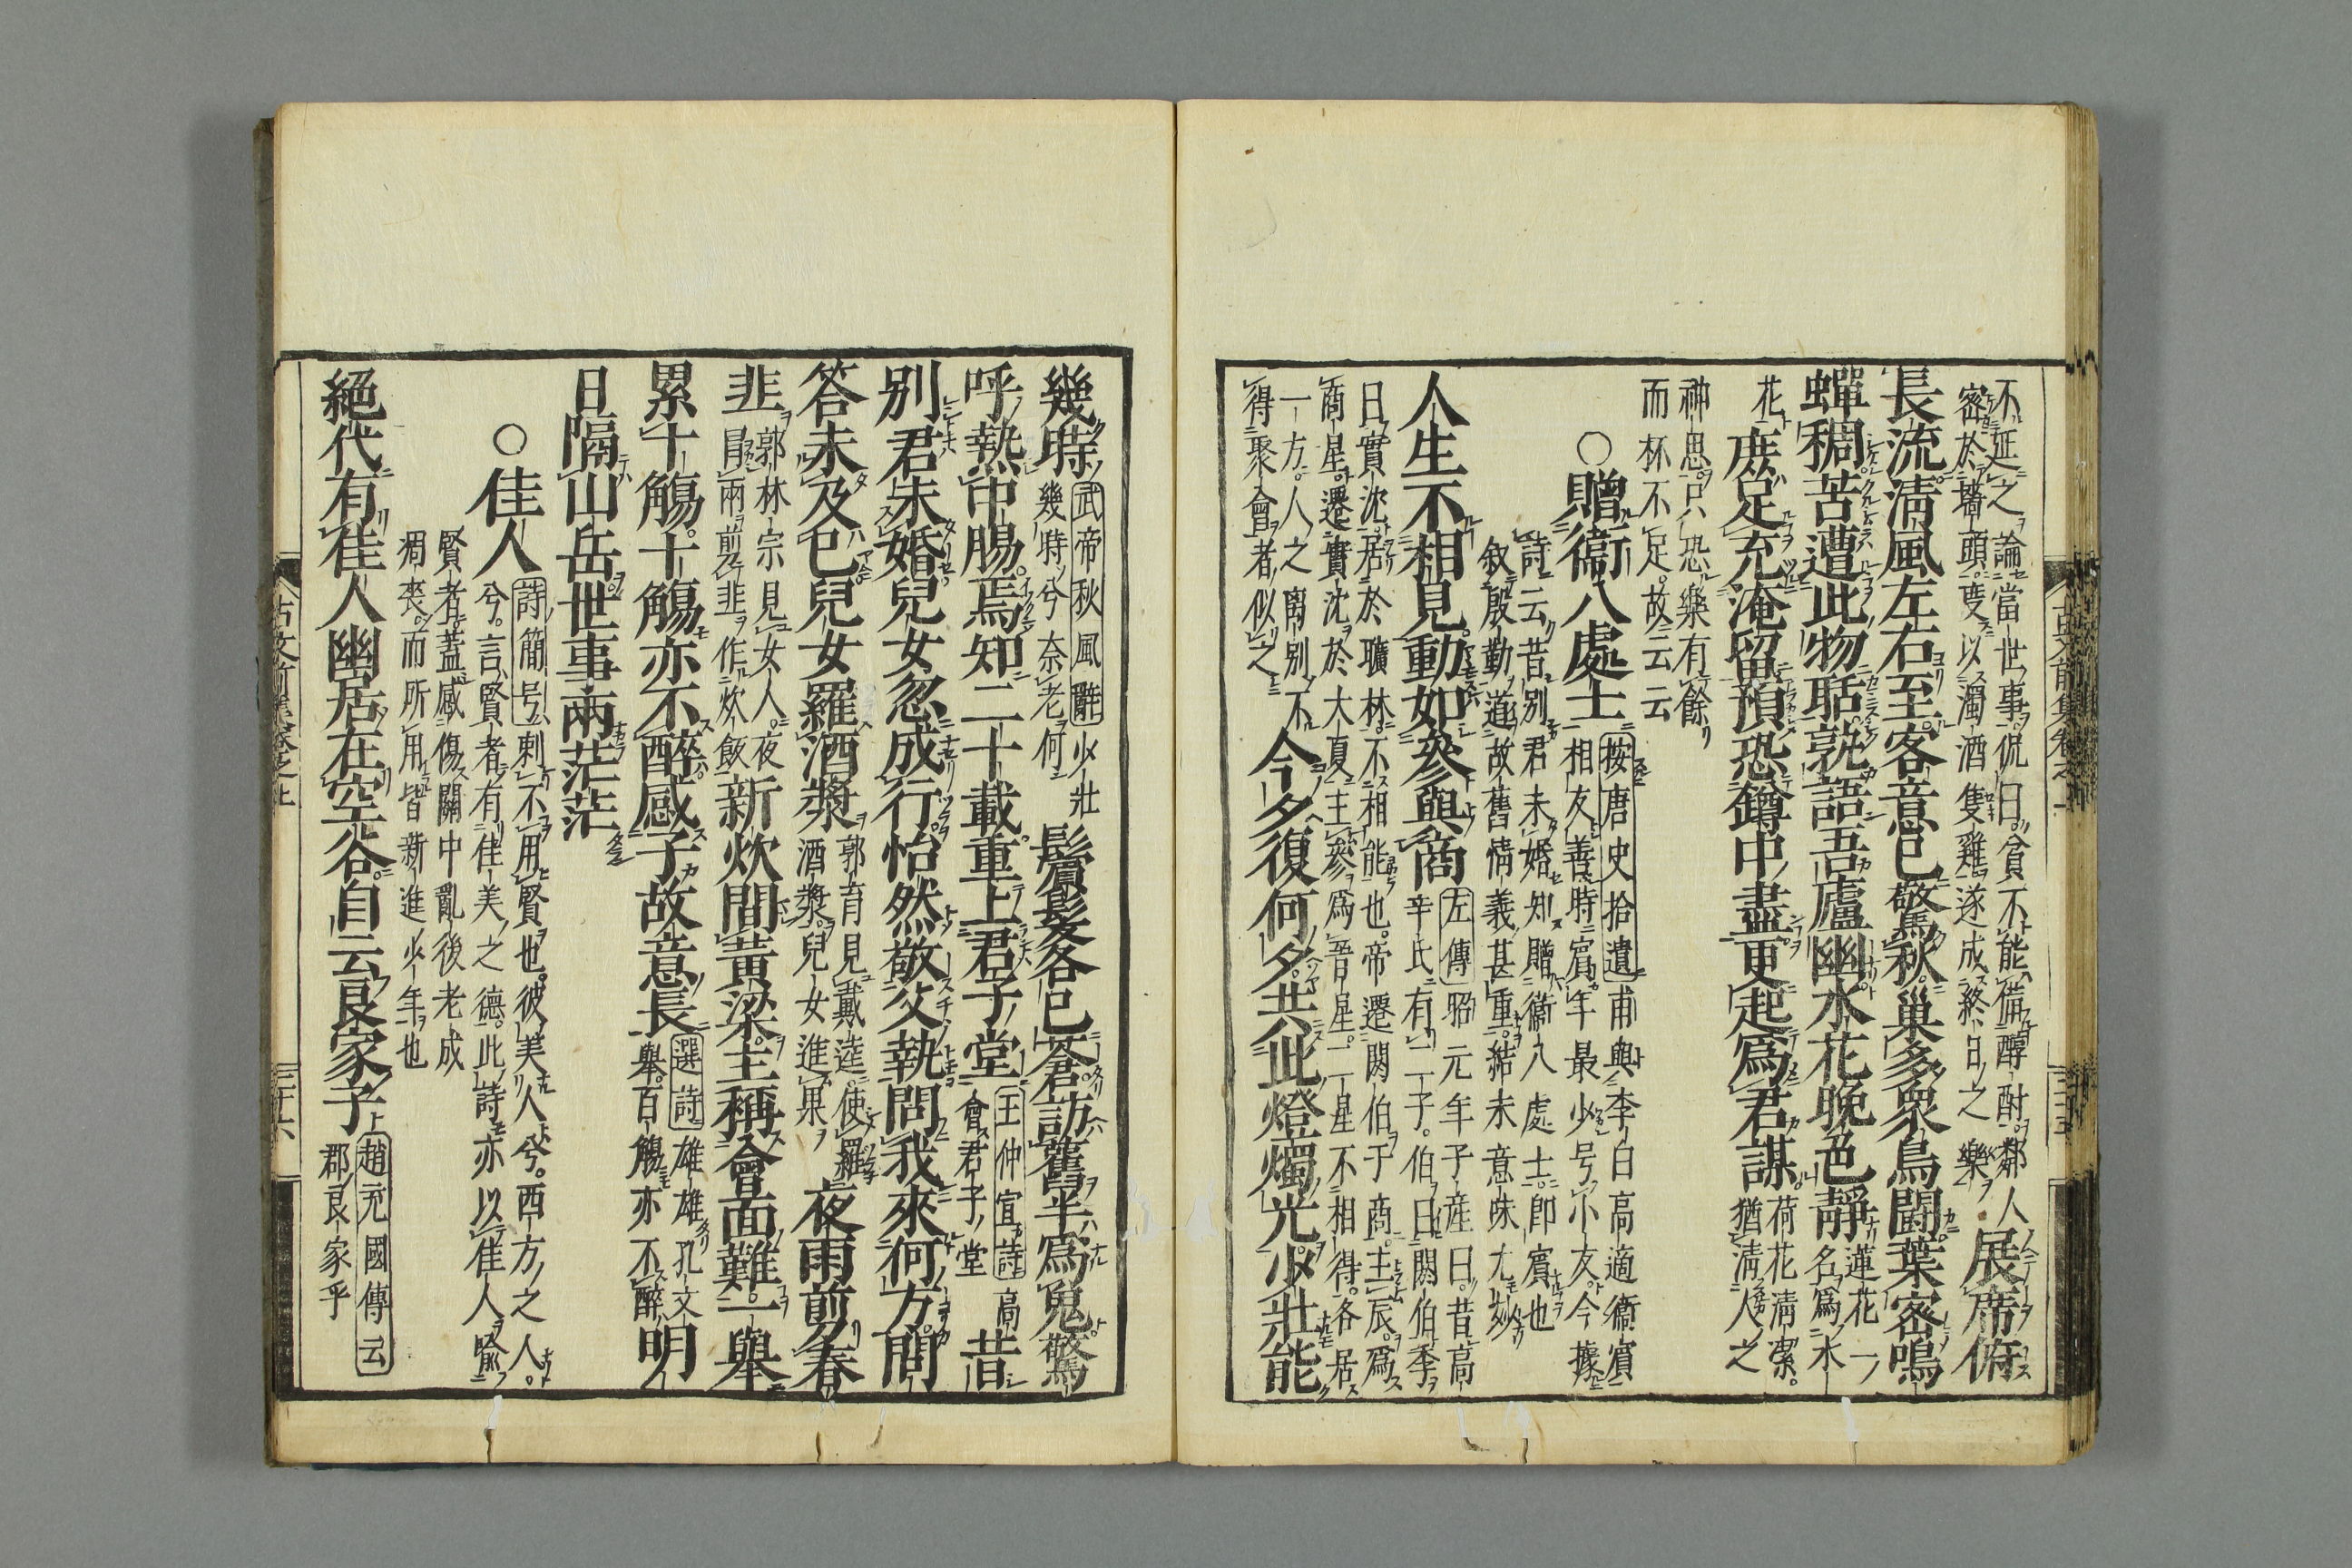 不延之論當世事侃曰貧不能備醇酎鄰人
密於墻頭度以濁酒隻雞遂成終日之樂
展席俯
長流清風左右至客意已驚秋巢多衆鳥鬪葉密鳴
蟬稠苦遭此物聒孰語吾廬幽水花晚色靜
蓮花一
名爲水
花
庶足充淹留預恐鐏中盡更起爲君謀
荷花清潔
猶清人之
神思只恐樂有餘
而杯不足故云云
○贈衞八處士
按唐史拾遺甫與李白高適衞賓
相友善時賓年最少号小友今據
詩云昔別君未婚知贈衞八處士即賓也
叙殷勤道故舊情義甚重結末意味尤妙
人生不相見動如參與商
左傳昭元年子產曰昔高
辛氏有二子伯曰閼伯季
曰實沈居於曠林不相能也帝遷閼伯于商主辰爲
商星遷實沈於大夏主參爲晉星二星不相得各居
一方人之离別不
得聚會者似之
今夕復何夕共此燈燭光少壯能
幾時
武帝秋風辭少壯
幾時兮奈老何
鬢髮各已蒼訪舊半爲鬼驚
呼熱中腸焉知二十載重上君子堂
王仲宣詩高
會君子堂
昔
別君未婚兒女忽成行怡然敬父執問我來何方問
答未及已兒女羅酒漿
郭育見戴逵使羅
酒漿兒女進果
夜雨剪春
韭
郭林宗見女人夜
冒雨前韭作炊飯
新炊間黃粱主稱會面難一舉
累十觴十觴亦不醉感子故意長
選詩雄雄孔文
舉百觴亦不醉
明
日隔山岳世事兩茫茫
○佳人
詩簡号刺不用賢也彼美人兮西方之人
兮言賢者有佳美之德此詩亦以佳人喻
賢者蓋感傷關中亂後老成
凋喪而所用皆新進少年也
絕代有佳人幽居在空谷自云良家子
趙充國傳云
郡良家乎
古文前集卷之上
三十六